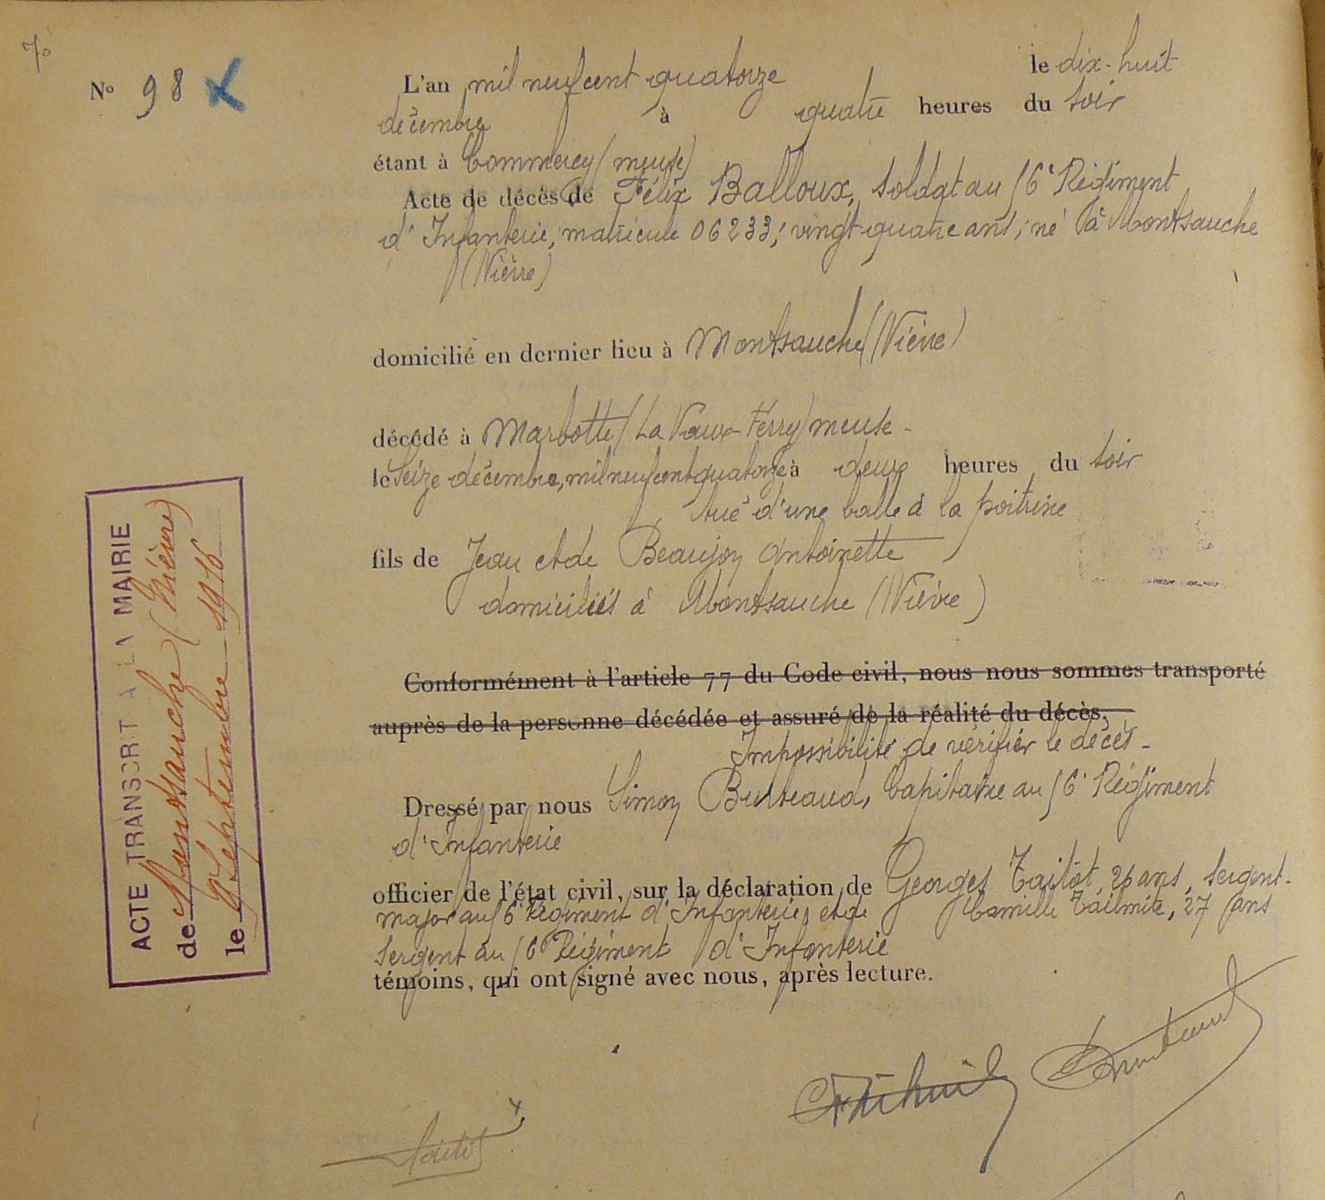 70
N° 98
L'an mil neuf cent quatorze le dix-huit
décembre à quatre heures du soir
étant à Commercy (meuse)
Acte de décès de Félix Balloux, soldat au 56e Régiment
d'Infanterie, matricule 06233, vingt-quatre ans, né à Montsauche
(Nièvre)
domicilié en dernier lieu à Montsauche (Nièvre)
décédé à Marbotte (La Vaux-Ferry) meuse -
le Seize décembre, mil neuf cent quatorze à deux heures du soir
tué d'une balle à la poitrine
fils de Jean et de Beaujon Antoinette
domiciliés à Montsauche (Nièvre)
Conformément à l'article 77 du Code civil, nous nous sommes transporté
auprès de la personne décédée et assuré de la réalité du décès.
Impossibilité de vérifier le décès -
Dressé par nous Simon Capitaine au 56e Régiment
d'Infanterie
officier de l'état civil, sur la déclaration de Georges 26 ans, Sergent-
major au 56e Régiment d'Infanterie, et de Camille 27 ans
Sergent au 56e Régiment d'Infanterie
témoins, qui ont signé avec nous, après lecture.
ACTE TRANSCRIT À LA MAIRIE
de Montsauche (Nièvre)
le Septembre 1916